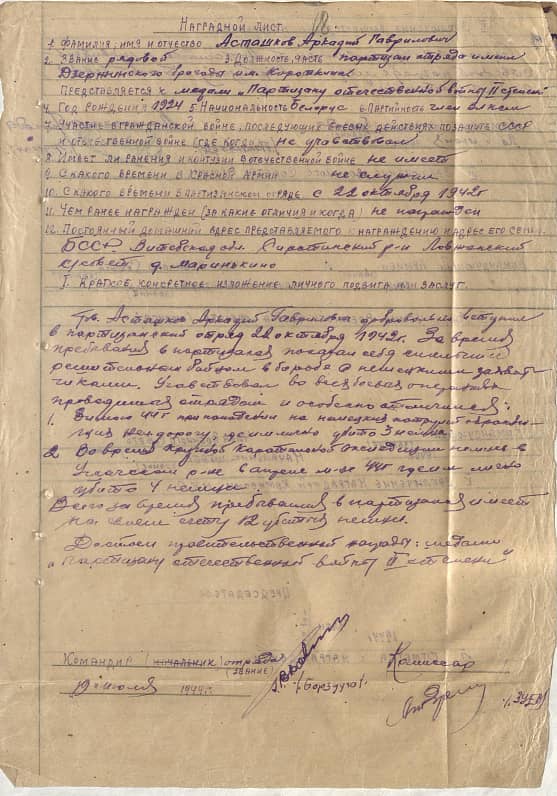 Наградной лист
1. Фамилия, имя и отчество Асташков Аркадий Гаврилович
2. Звание рядовой 3. Должность, часть партизан отряда имени
Дзержинского бригада им. Короткина
Представляется к медали „Партизану отечественной войны II степени“
4. Год рождения 1924 5. Национальность белорус 6. Партийность член влксм
7. Участие в гражданской войне, последующих боевых действиях по защите СССР
и отечественной войне (где, когда) не участвовал
8. Имеет ли ранения и контузии в отечественной войне не имеет
9. С какого времени в Красной Армии не служил
10. С какого времени в партизанском отряде с 22 октября 1942г
11. Чем ранее награжден (за какие отличия и когда) не награжден
12. Постоянный домашний адрес представляемого к награждению и адрес его семьи
БССР Витебская обл. Сиротинский р-н Ловжанский
с/совет д. Маринькино
I. Краткое, конкретное изложение личного подвига или заслуг.
Тов. Асташков Аркадий Гаврилович добровольно вступил
в партизанский отряд 22 октября 1942г. За время
пребывания в партизанах показал себя смелым и
решительным бойцом в борьбе с немецкими захват-
чиками. Участвовал во всех боевых операциях
проводимых отрядом и особенно отличился:
1. Зимой при нападении на немецкий патруль
дорогу где им лично убито 3 немца.
2. Во время крупной карательной экспедиции немцев в
Ушачском р-не в апреле м-це 44г где им лично
убито 4 немца.
Всего за время пребывания в партизанах имеет
на своем счету 12 убитых немцев.
Достоин правительственной награды: медали
„Партизану отечественной войны II степени“
Командир (начальник) отряда
(звание)
Комиссар
19 июля 1944г.